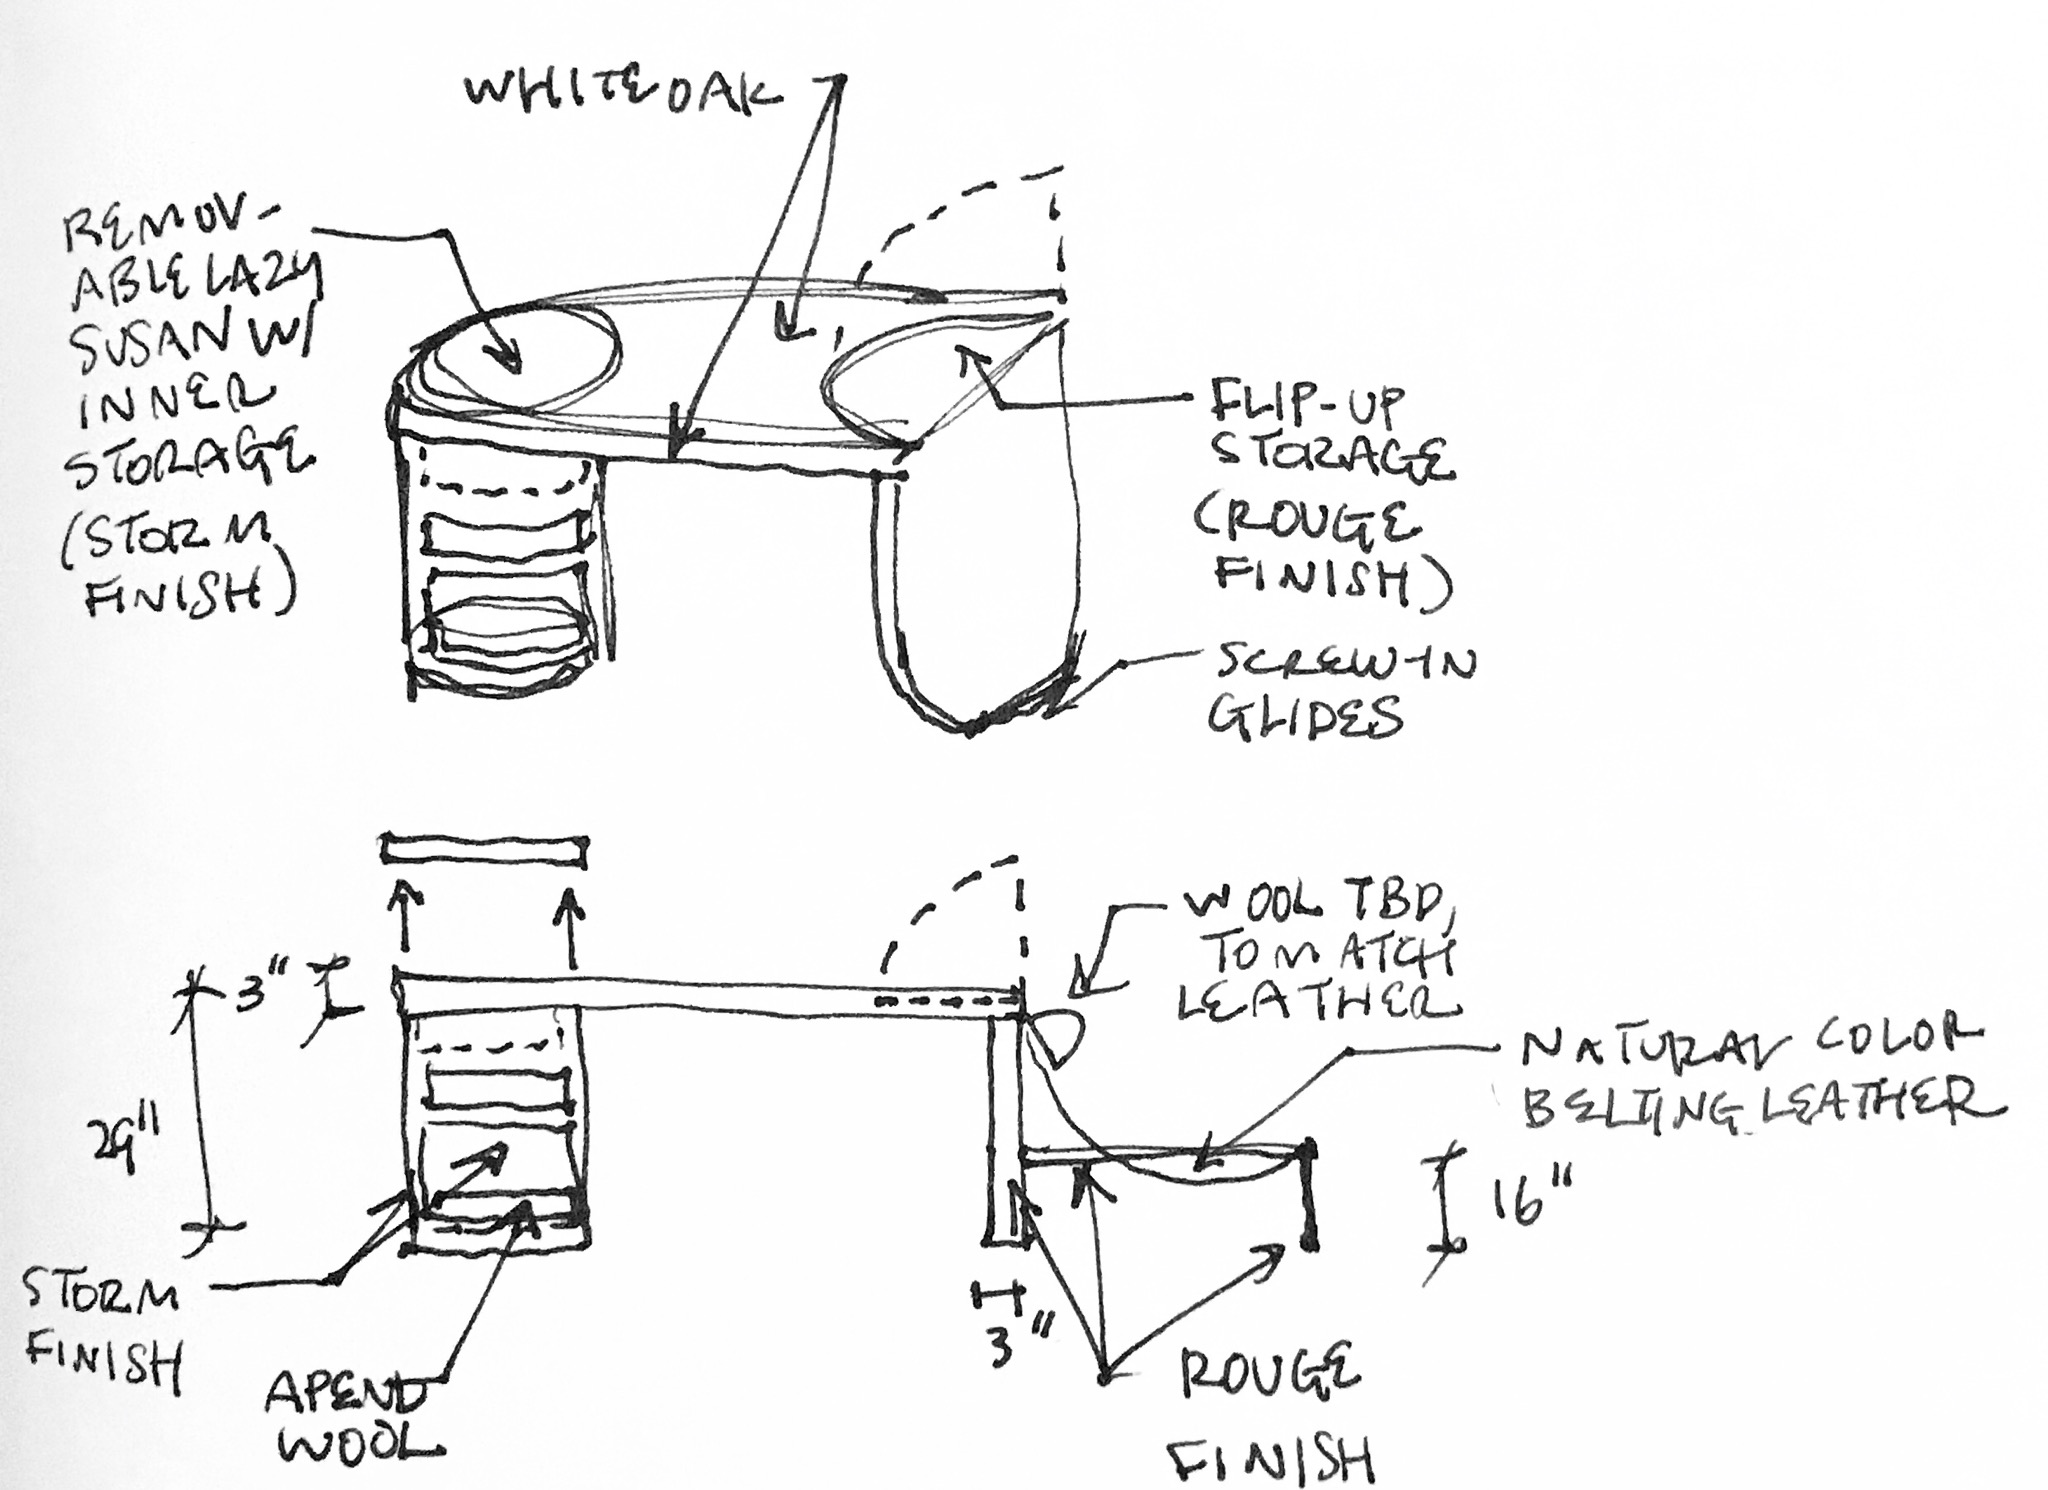 WHITE OAK
REMOV-
ABLE LAZY
SUSAN W/
INNER
STORAGE
(STORM
FINISH)
FLIP-UP
STORAGE
(ROUGE
FINISH)
SCREW-IN
GLIDES
WOOL TBD,
TO MATCH
LEATHER
NATURAL COLOR
BELTING LEATHER
3"
29"
16"
3"
STORM
FINISH
APEND
WOOL
ROUGE
FINISH